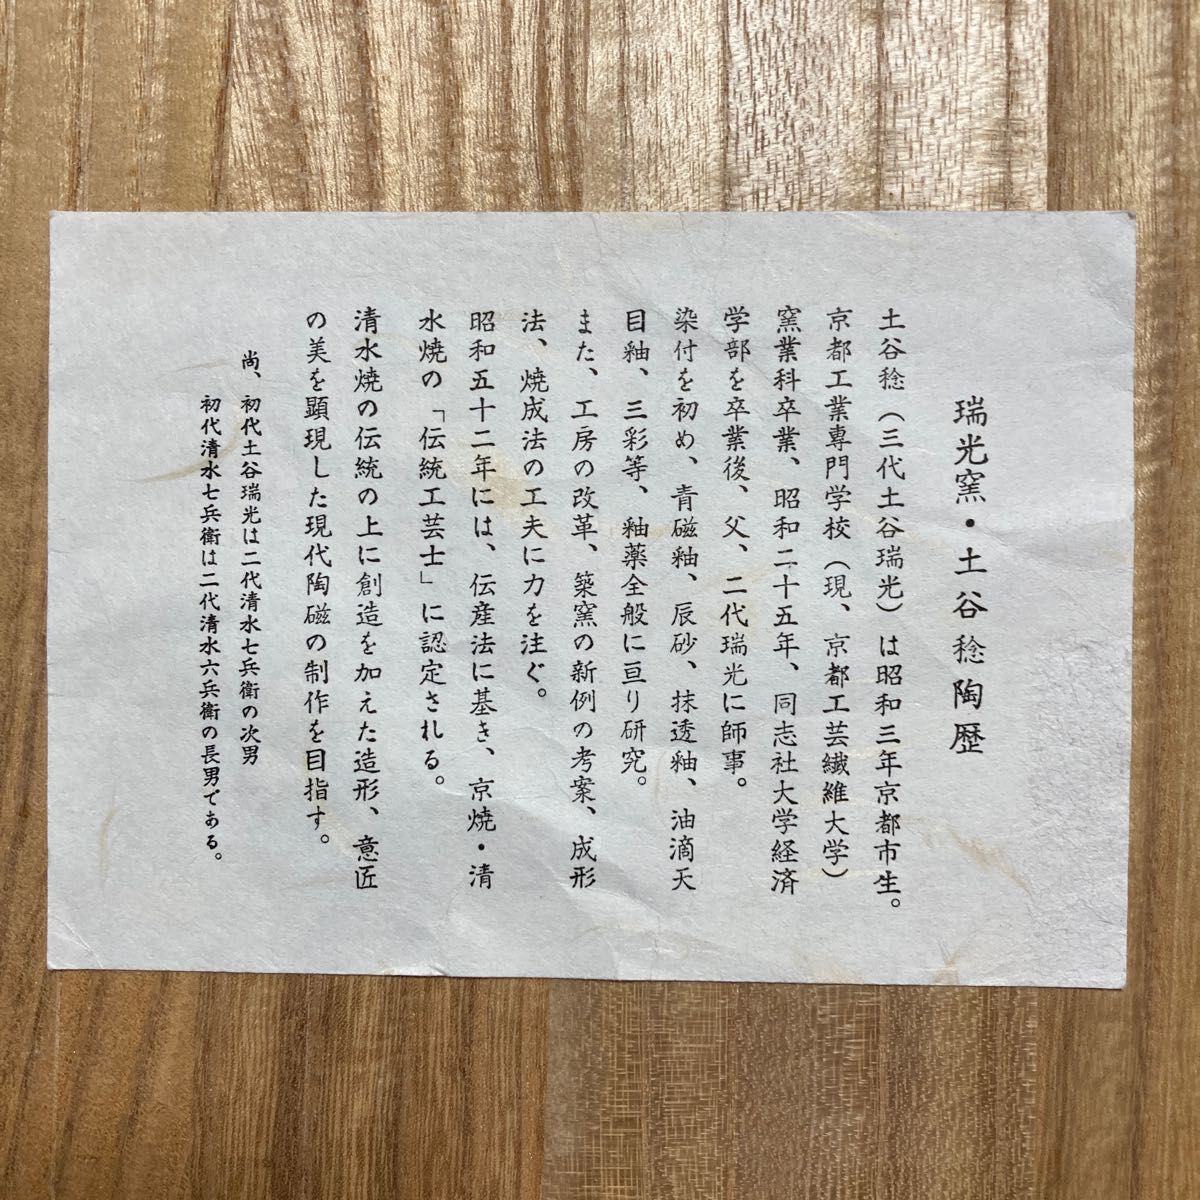 瑞光窯・土谷稔陶歴
土谷稔（三代土谷瑞光）は昭和三年京都市生。
京都工業専門学校（現、京都工芸繊維大学）
窯業科卒業、昭和二十五年、同志社大学経済
学部を卒業後、父、二代瑞光に師事。
染付を初め、青磁釉、辰砂、抹透釉、油滴天
目釉、三彩等、釉薬全般に亘り研究。
また、工房の改革、築窯の新例の考案、成形
法、焼成法の工夫に力を注ぐ。
昭和五十二年には、伝産法に基き、京焼・清
水焼の「伝統工芸士」に認定される。
清水焼の伝統の上に創造を加えた造形、意匠
の美を顕現した現代陶磁の制作を目指す。
尚、初代土谷瑞光は二代清水七兵衛の次男
初代清水七兵衛は二代清水六兵衛の長男である。